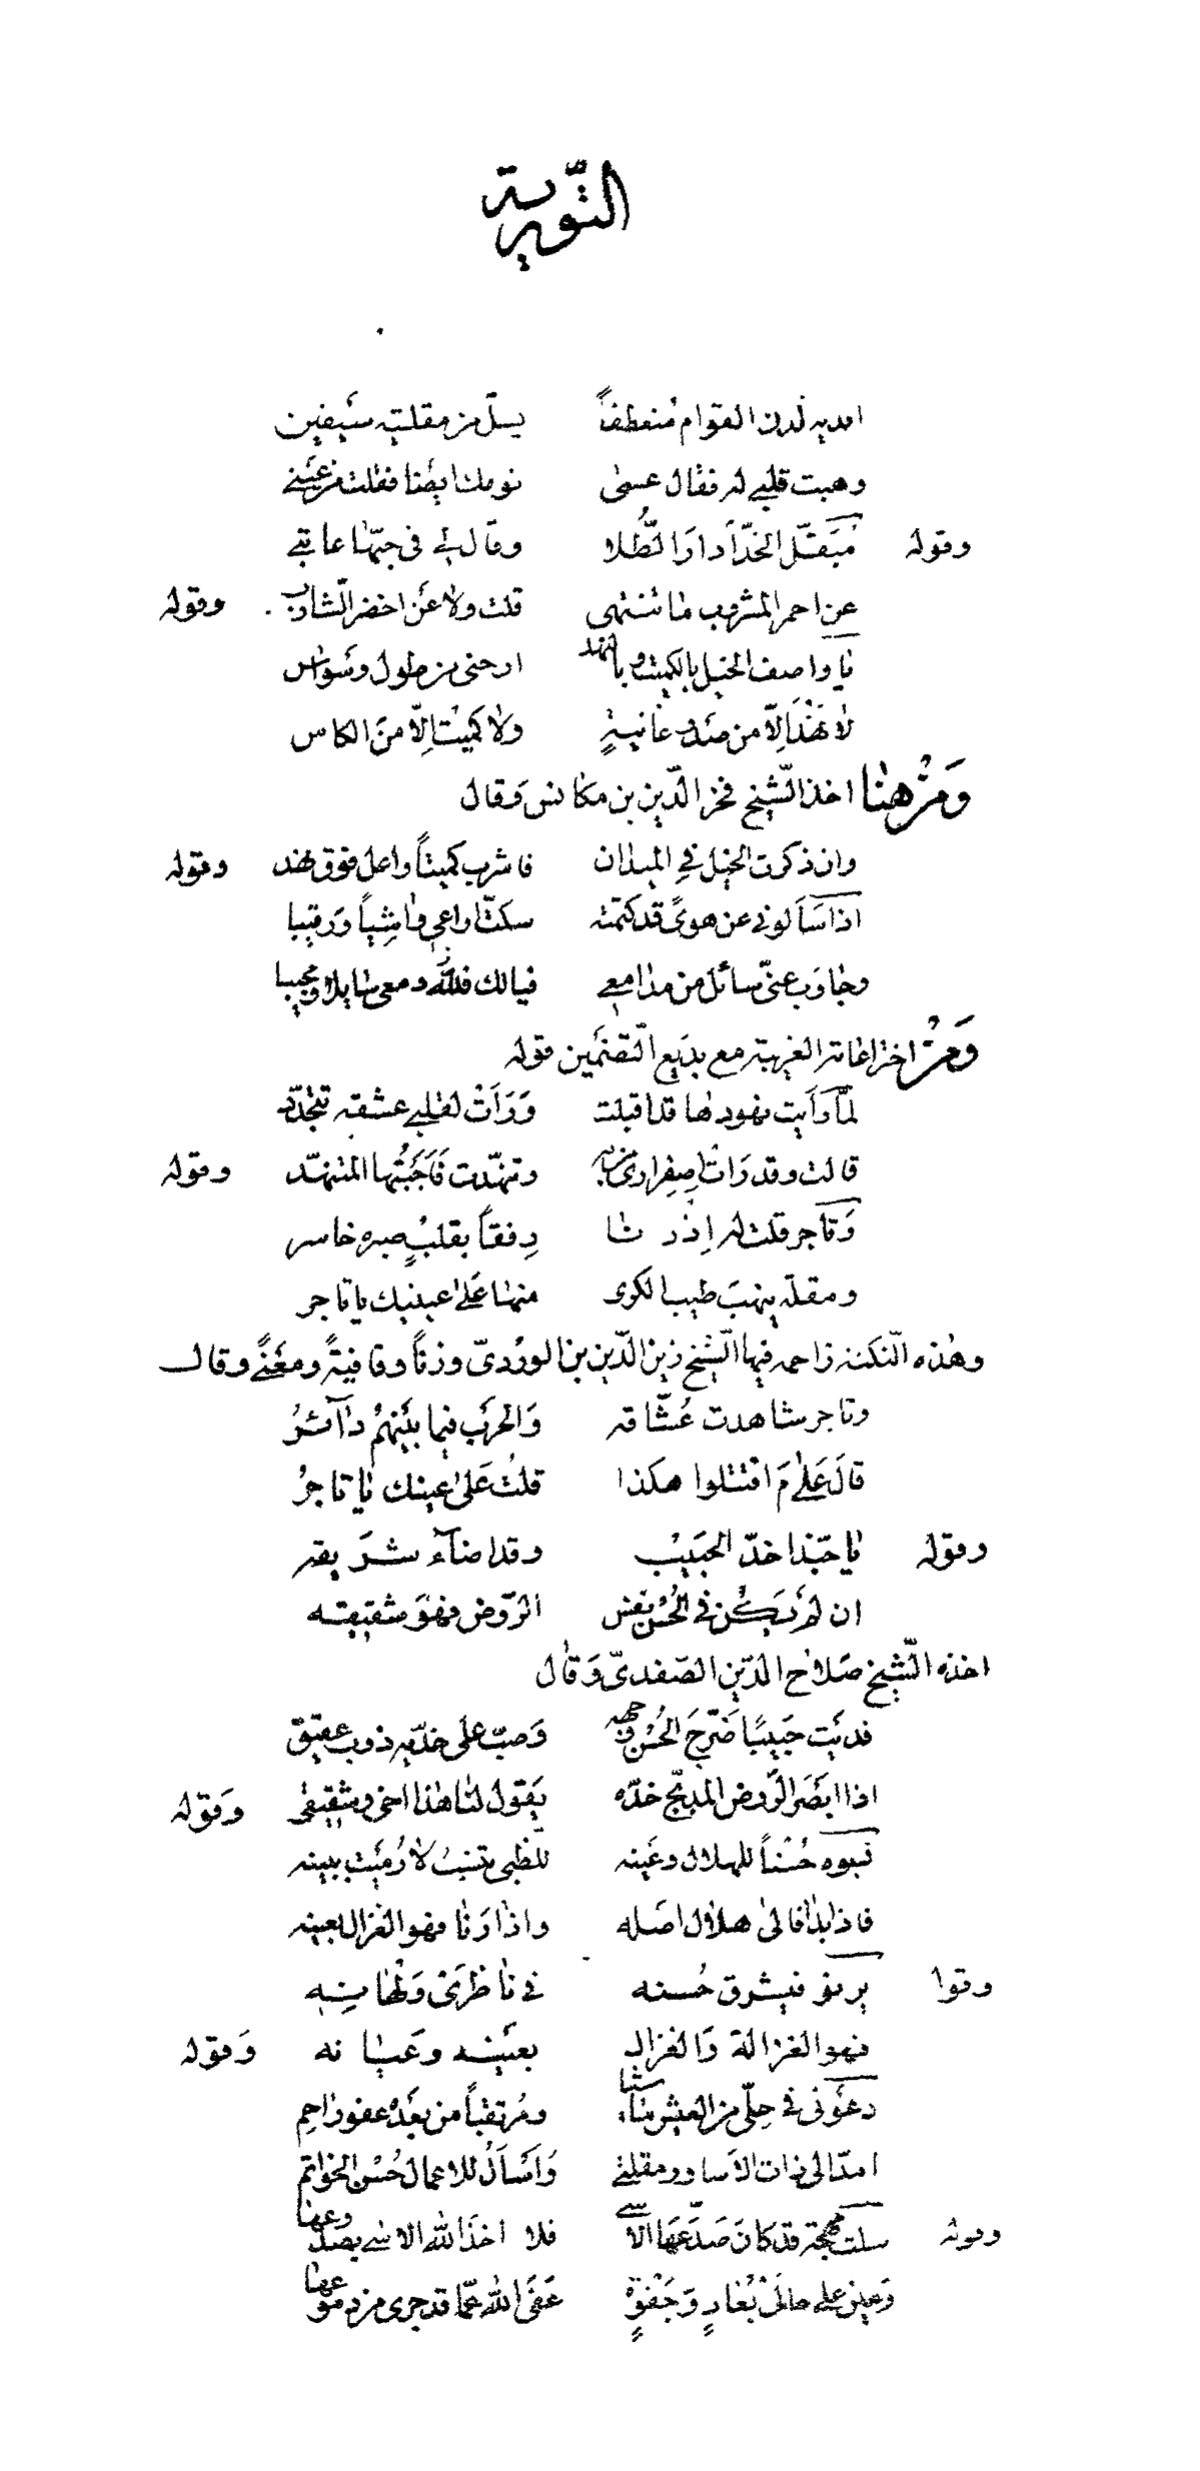 التورية
افديه لدن القوام منعطفًا يسلّ من مقلتيه سيفين
وهبت قلبي له فقال عسى نومك ايضا فقلت من عيني
وقوله مُبَقّل الخدّ اَدارَ الطُّلا وقال لي في حبّها عاتبي
عن احمر المشروب ما تنتهى قلت ولا عَن اخضر الشارب وقوله
يا واصف الخيل بالكميت وبالنهد ارحنى من طول وَسْواس
لا نَهْدَ اِلّا من صَدر غانيةٍ ولا كميت اِلّا منَ الكاس
وَمِنْ هنا اخذ الشّيخ فخر الدّين بن مكانس وَقال
وان ذكرت الخيل في الميدان فاشرب كميتاً واعل فوق نهد وقوله
اذا سَاَلونى عن هوىً قد كتمته سكتّ اراعى واشِياً وَرقيبا
وجاوَب عنّى سائل من مدامعى فيالك فلله دمعى سايلا ومجيبا
وَمِنْ اختراعاته الغريبة مع بديع التّضمين قوله
لمّا رَاَيت نهودها قد اقبلت وَرَاَتْ لقلبي عشقه تتجدّد
قالت وقد رَاَت اصفرارى من به وتنهّدت فَاَجَبْتُها المتنهّد وقوله
وَتاجر قلت له اذ رنا رِفقاً بقلبٍ صبره خاسر
ومقلة ينهبَ طيب الكرى منها عَلى عينيك يا تاجر
وهٰذه النّكتة زاحمه فيها الشّيخ زين الدّين بن الوَرْدىّ وزناً وقافيةً ومعْنًى وقال
وتاجر شاهدت عُشّاقه وَالحَرْب فيما بَيْنهمْ دَآئرُ
قالَ عَلٰىمَ اقتتلوا هكذا قلتُ عَلى عينك يا تاجرُ
وقوله يا حبّذا خدّ الحبَيبْ وقد اضآءَ شرَيقه
ان لم يَكُن في الحُسْن نفس الرّوض فهْوَ شقيقه
اخذه الشّيخ صَلاح الدّين الصّفدىّ وَقال
فديَت حَبِيبًا ضَرّجَ الحُسْن وجهه وَصبّ على خدّيه ذوب عقيق
اذا ابصَرَ الرّوض المدبّج خدّه يَقول لنا هٰذا اخى وشقيقى وَقوله
نسبوه حُسْناً للهلال وعَينه للظبى تنسبُ لا رُميَت ببينه
فاذا بدا فالى هلال اصله واذا رَنا فهو الغزال بعينه
وقوا يرنو فيشرق حُسنه فى ناظرَىْ وَلْهانِهِ
فهو الغزالة وَالغزال بعَينه وعَيانه وَقوله
دعَونى فى حِلّى من العيش مائسًا ومُرتقباً من بعَده عفو راحِم
امدّ الى ذات الاساور مقلتى وَاَسْاَلُ للاعمال حُسْن الخواتم
وقوله سلت مهجة قد كانَ صَدّعهَا الاسى فلا اخَذ الله الاسى بصدوعها
وَعين على حالَىْ بُعادٍ وَجَفوَةٍ عَفَى اللهُ عمّا قد جرى من دموعها